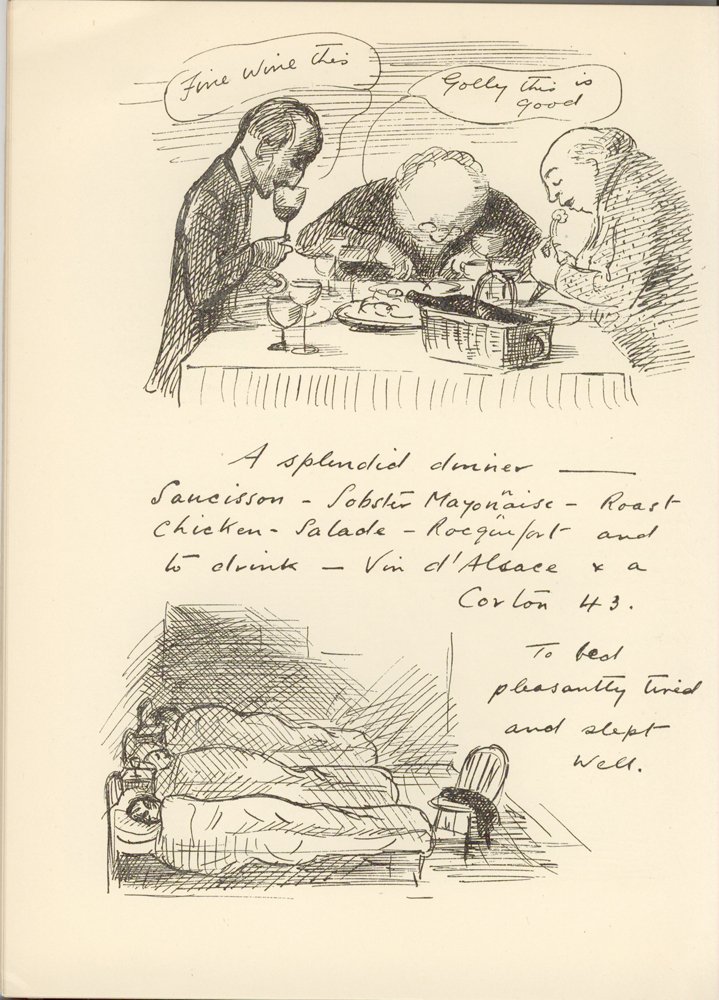 Fine wine this
Golly this is
good
A splendid dinner —
Saucisson - Lobster Mayonnaise - Roast
Chicken - Salade - Rocquefort and
to drink - Vin d'Alsace & a
Corton 43.
To bed
pleasantly tired
and slept
well.